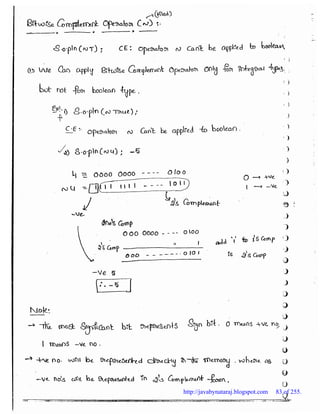 (tilde)
Bitwise Complement Operator (~) :-
S.o.pln(~T) ; CE: operator ~ can't be applied to boolean
We can apply Bitwise Complement Operator only for Integral types,
but not for boolean type.
Ex:- 1) S.o.pln(~True);
C.E:- operator ~ can't be applied to boolean.
2) S.o.pln(~4) ; -5
4 ≅ 0000 0000 ---- 0100
0 → +ve
~4 = 1111 1111 ---- 1011
1 → -ve
-ve
2's Complement
1's Comp
000 0000 ---- 0100
2's Comp 1
add '1' to 1's Comp
000 ------- 0101
is 2's Comp
-ve 5
∴ -5
Note:
→ The most significant bit represents Sign bit. 0 means +ve no.,
1 means -ve no.
→ +ve no. will be represented directly in the memory. where as
-ve no's will be represented in 2's Complement form.
http://javabynataraj.blogspot.com 83 of 255.